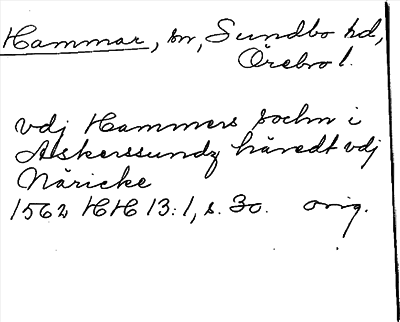 Hammar, sn, Sundbo hd,
Örebro l.
vdj Hammers sochn i
Askerssundz häredt vdj
Näricke
1562 HH 13:1, s. 30. orig.